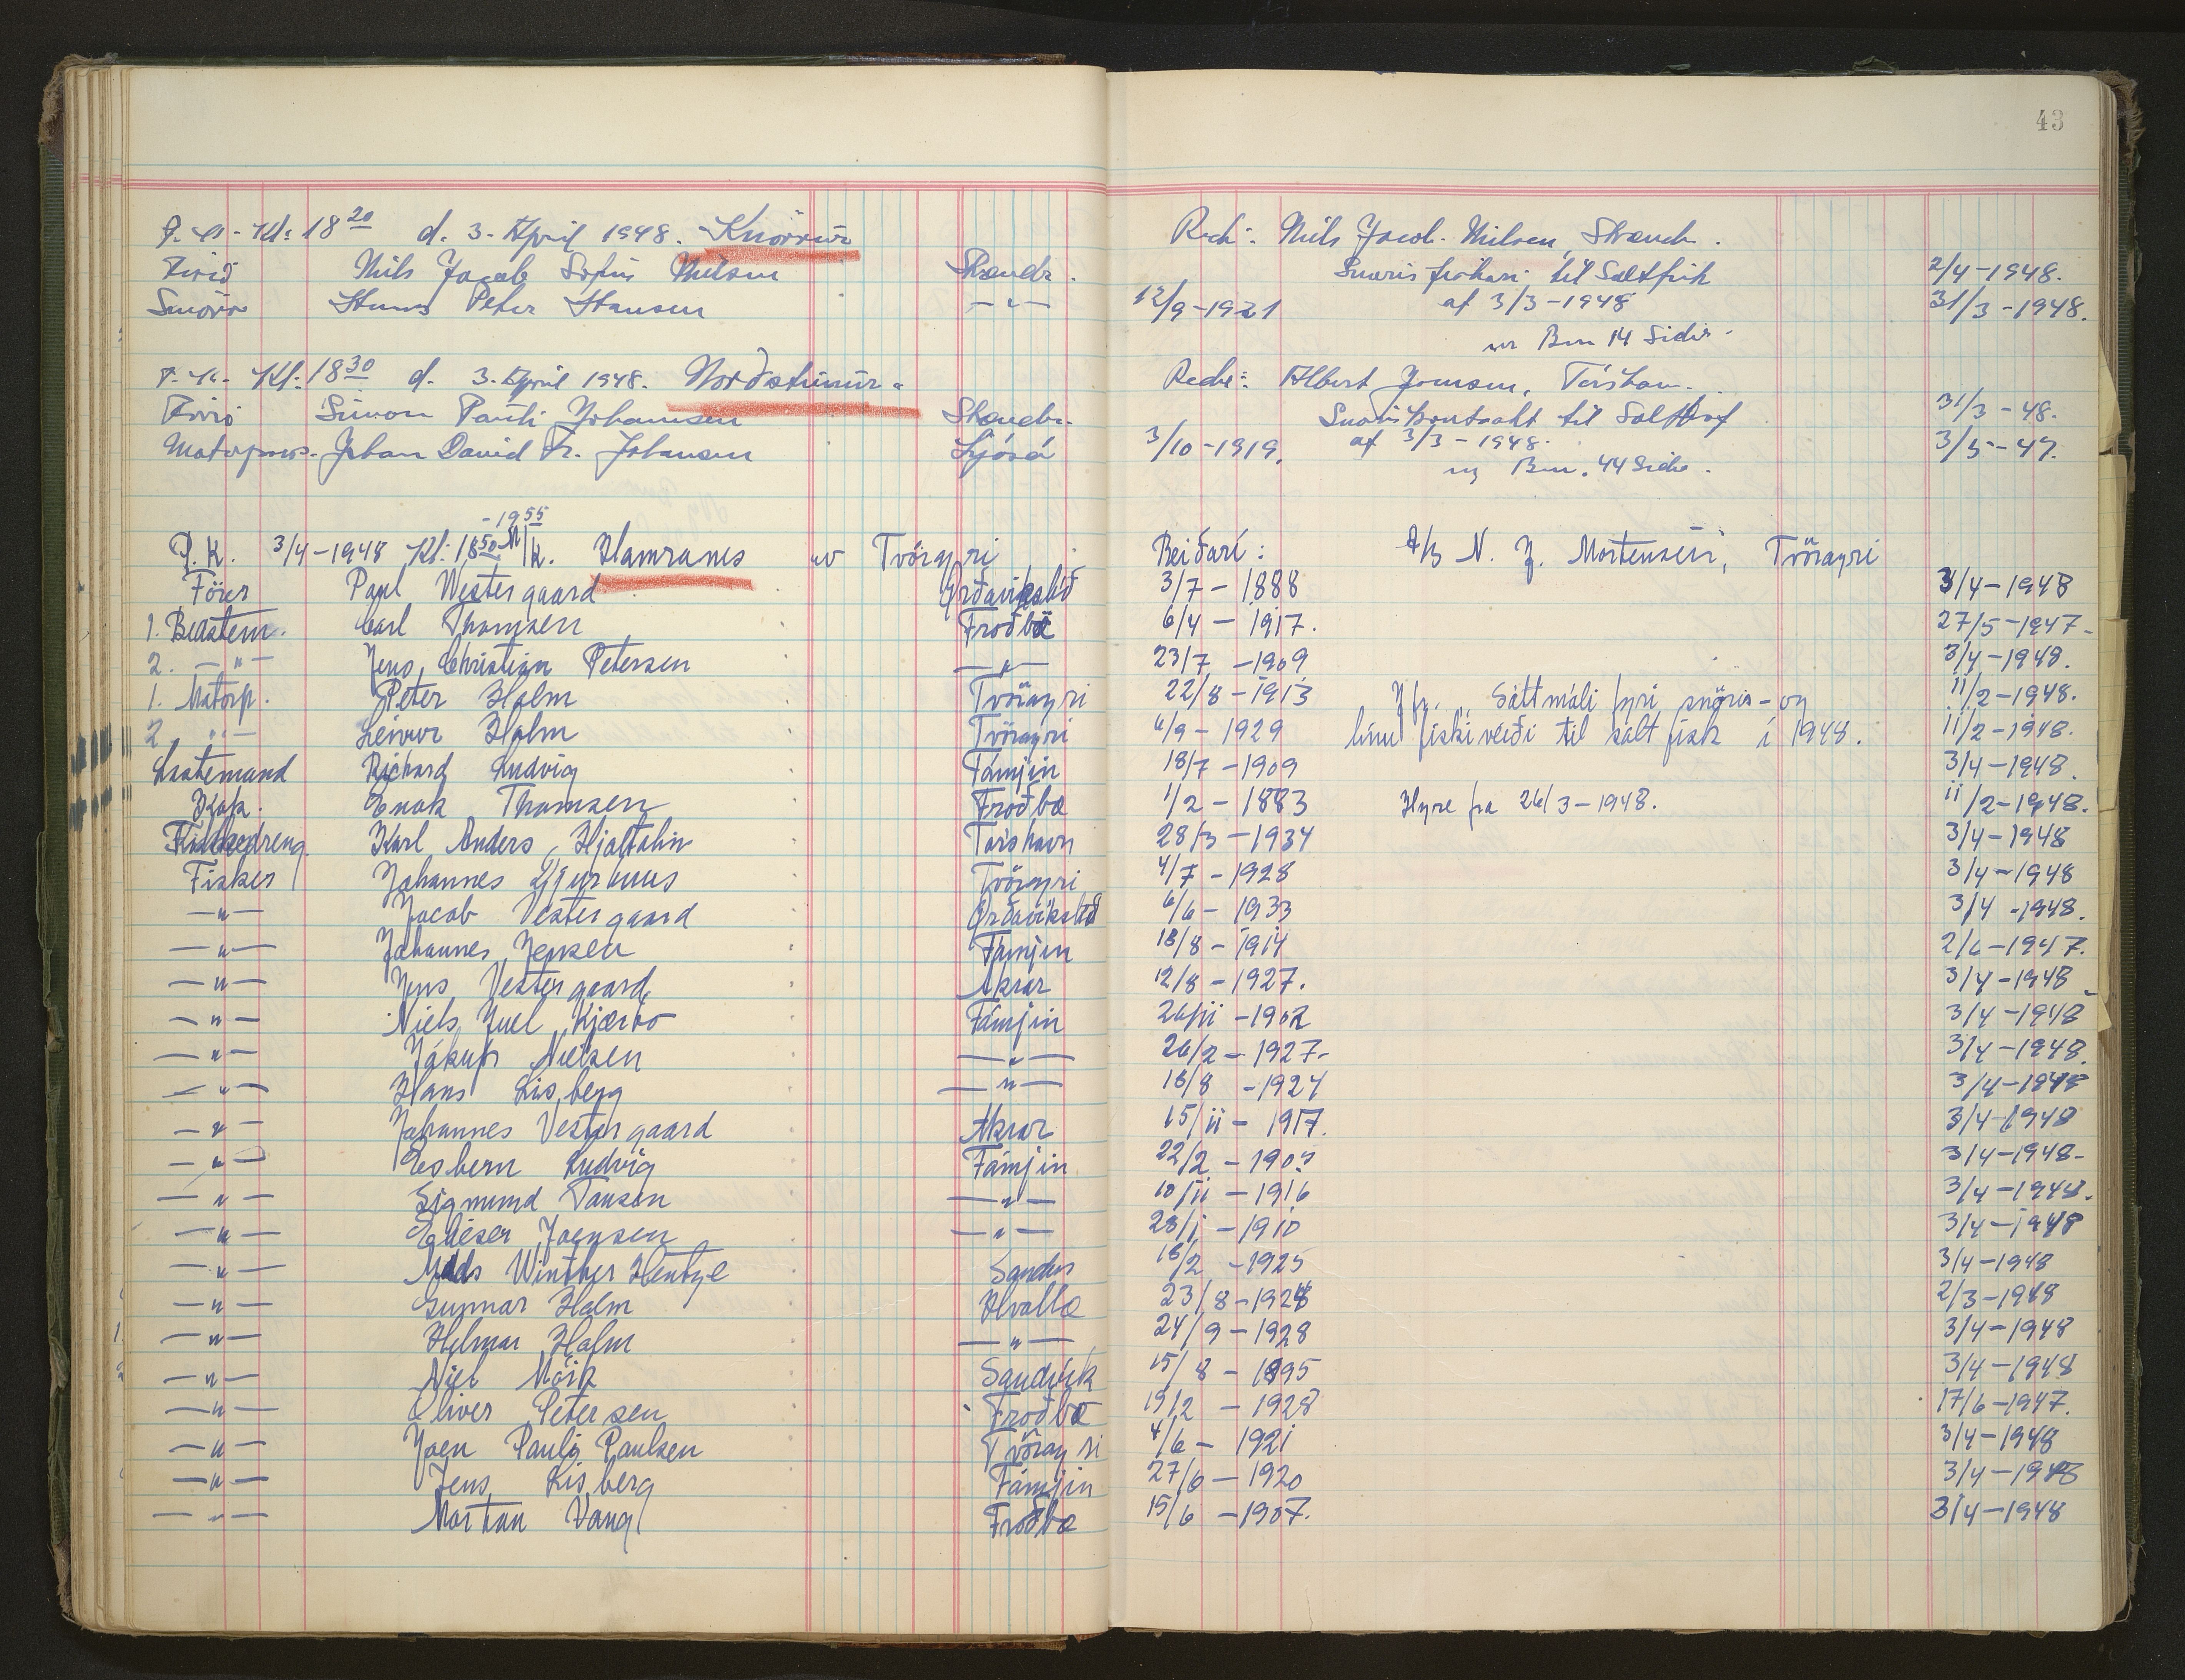 43
P. K. Kl: 18 20 d. 3. April 1948. Knörrur Rech: Nils Jacob Nilsen, Skaaeh.
Nils Jacob Sofus Nilsen 2/4-1948.
Hans Peter Hansen -"- 12/9-1921 af 3/3-1948 31/3-1948.
14 Sider.
P. K. Kl: 18 30 d. 3. April 1948. Norðstjürur Rede: Albert Joensen, Tórshavn.
Simon Pauli Johansen til Saltfisk 31/3-48.
Johan David Fr. Johansen 3/10-1919. af 3/3-1948. 3/5-47.
44 Side.
-19 55
P. K. 3/4-1948 Kl: 18 50 M/k. Hamranes av Tvöroyri Reiðarí: A/S N. J. Mortensen, Tvöroyri
Förer Paul Westergaard Örðavikslið 3/7-1888 3/4-1948
1. Bedstem. Carl Thomsen Froðbö 6/4-1917. 27/5-1947-
2. -"- Jens Christian Petersen -"- 23/7-1909 3/4-1948.
1. Motorp. Peter Holm Tvöroyri 22/8-1913 Sáttmáli fyri snöris- og 11/2-1948.
2. -"- Leivur Holm Tvöroyri 6/9-1929 línu fiskiveiði til saltfisk í 1948. 11/2-1948.
Lastemand Richard Ludvig Fámjin 18/7-1909 3/4-1948.
Kok. Enok Thomsen Froðba 1/2-1883 Hyre fra 26/3-1948. 11/2-1948.
Kokkedreng. Karl Anders Hjaltalin Tórshavn 28/3-1934 3/4-1948
Fisker Johannes Djurhuus Tvöroyri 4/7-1928 3/4-1948
-"- Jacob Vestergaard Örðavikslið 6/6-1933 3/4-1948.
-"- Johannes Jensen Fámjin 18/8-1914 2/6-1947.
-"- Jens Vestergaard Akrar 12/8-1927. 3/4-1948
-"- Niels Juel Kjærbo Fámjin 26/11-1902 3/4-1948
-"- Jákup Nielsen -"- 26/2-1927- 3/4-1948.
-"- Hans Lisberg -"- 18/8-1924 3/4-1948
-"- Johannes Vestergaard Akrar 15/11-1917. 3/4-1948
-"- Esbern Ludvig Fámjin 22/2-1907 3/4-1948-
-"- Sigmund Tausen -"- 10/11-1916 3/4-1948.
-"- Elieser Joensen -"- 28/1-1910 3/4-1948
-"- Mads Winther Hentze Sandur 18/2-1925 3/4-1948
-"- Gunnar Holm Hvalba 23/8-1928 2/3-1948
-"- Hilmar Holm -"- 24/9-1928 3/4-1948
-"- Niels Mörk Sandvik 15/8-1895 3/4-1948
-"- Oliver Petersen Froðba 19/2-1928 17/6-1947.
-"- Joen Pauli Paulsen Tvöroyri 4/6-1921 3/4-1948
-"- Jens Lisberg Fámjin 27/6-1920 3/4-1948
-"- Mortan Vang Froðba 15/6-1907. 3/4-1948